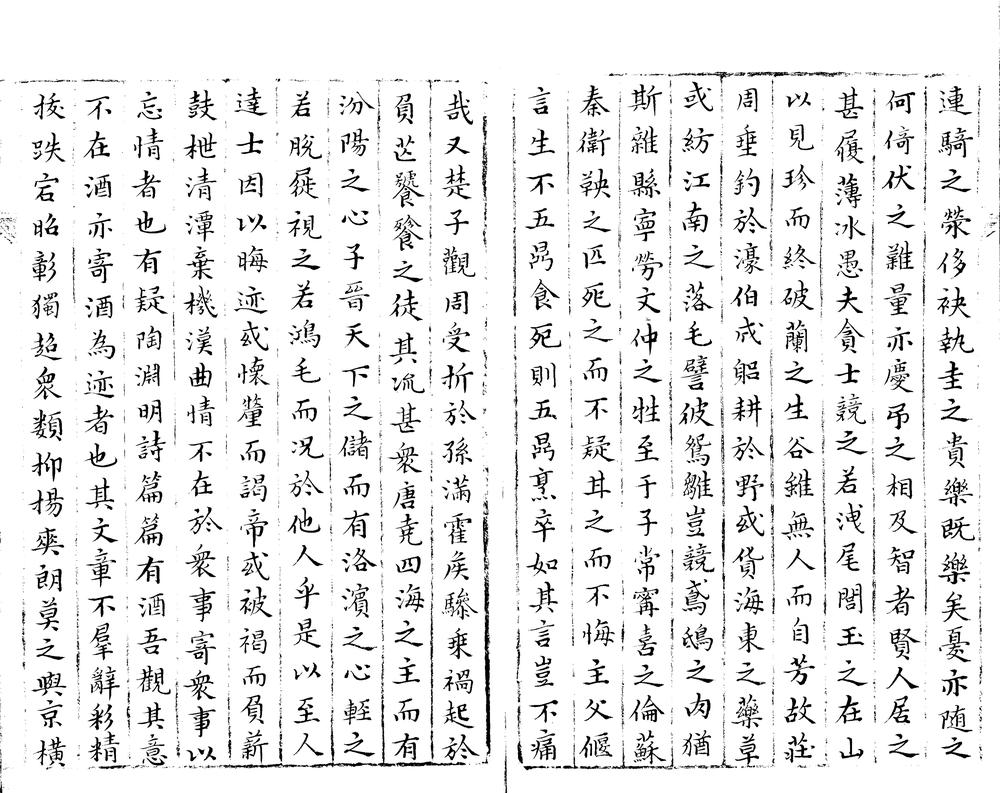 連騎之榮侈袂執圭之貴樂既樂矣憂亦随之
何倚伏之難量亦慶弔之相及智者賢人居之
甚履薄冰愚夫貪士競之若洩尾閭玉之在山
以見珍而終破蘭之生谷雖無人而自芳故莊
周垂釣於濠伯成躬耕於野或貨海東之藥草
或紡江南之落毛譬彼鴛雛豈競鳶鴟之肉猶
斯雜縣寧勞文仲之牲至于子常寗喜之倫蘇
秦衛鞅之匹死之而不疑甘之而不悔主父偃
言生不五鼎食死則五鼎烹卒如其言豈不痛
哉又楚子觀周受折於孫滿霍矦驂乗禍起於
負芒饕餮之徒其流甚衆唐堯四海之主而有
汾陽之心子晉天下之儲而有洛濱之心輕之
若脫屣視之若鴻毛而况於他人乎是以至人
達士因以晦迹或懷釐而謁帝或被褐而負薪
鼓枻清潭棄機漢曲情不在於衆事寄衆事以
忘情者也有疑陶淵明詩篇篇有酒吾觀其意
不在酒亦寄酒為迹者也其文章不羣辭彩精
拔跌宕昭彰獨超衆類抑揚爽朗莫之與京橫